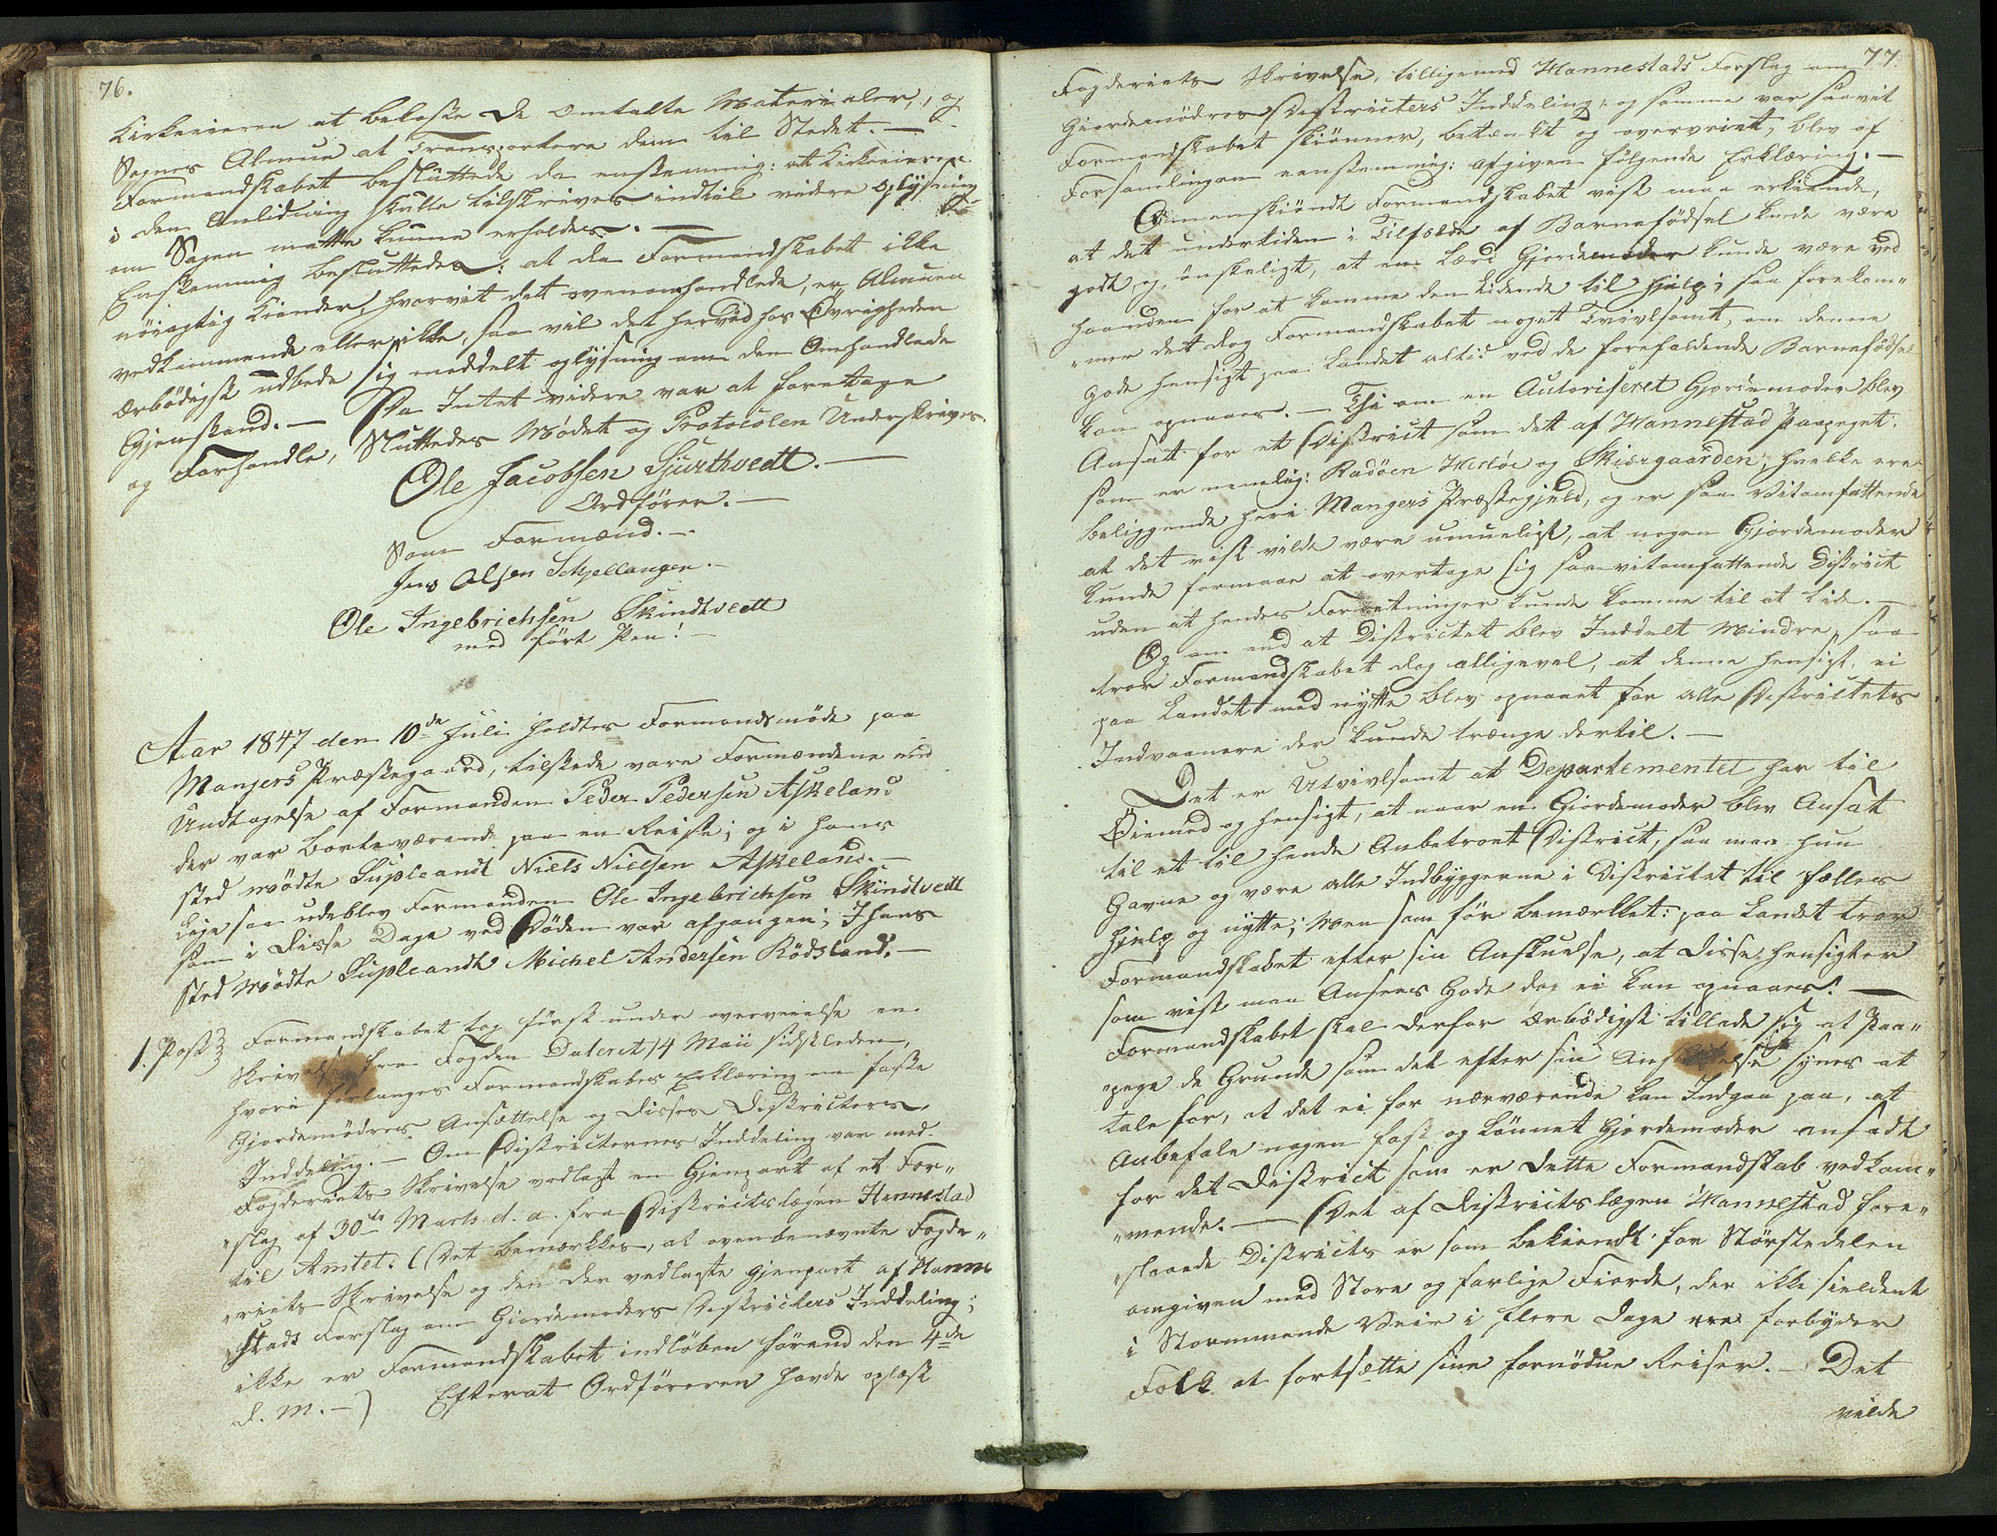 76.
Kirkeeieren at bekoste de omtalte Materialer, og
Sognes Almue at Transportere dem til Stedet. —
Formandskabet besluttede da enstemmig: at Kirkeeieren
i den Anlidning skulle tilskrives indtil videre oplysning
om Sagen matte kunne erholdes. —
Enstemmig besluttedes: at da Formandskabet ikke
nöiagtig kiender, hvorvit det ovenomhandlede, er Almuen
vedkommende eller ikke, saa vil det herved hos Øvrigheden
ærbödigst udbede sig meddelt oplysning om den Omhandlede
Gjenstand. — Da Intet videre var at foretage
og Forhandle, Sluttedes Mödet og Protocolen Underskrives.
Ole Jacobsen Sjurthvedt. —
Ordförer. —
Som Formænd. —
Jens Olsen Schjellanger. —
Ole Ingebrichsen Skindtvedt
med fört Pen! —
Aar 1847 den 10de Juli holdtes Formandsmöde paa
Mangers Præstegaard, tilstede vare Formændene med
Undtagelse af Formanden Peder Pedersen Askeland
der var bortværende paa en Reise; og i hans
sted mödte Supleandt Niels Nielsen Askeland. —
Lige saa udeblev Formanden Ole Ingebrichsen Skindtvedt
som i disse Dage ved Döden var afgangen; I hans
sted mödte Supleandt Michel Andersen Rödsland. —
1. Post Formandskabet tog först under overveielse en
Skrivelse fra Fogden Dateret 14 Maii sidstleden,
hvori forlanges Formandskabes Erklæring om faste
Gjordemödres Ansættelse og disses Districters
Inddeling. — Om Districternes Inddeling var med
Fogderiets Skrivelse vedlagt en Gjenpart af et For„
„slag af 30te Marts d. a. fra Districtslægen Hannestad
til Amtet: (Det bemærkkes, at ovenbenævnte Fogde„
„riets Skrivelse og den der vedlagte gjenpart af Hanne
stads Forslag om Giordemoders Districters Inddeling;
ikke er Formandskabet indlöben förend den 4de
d. M. —) Efterat Ordföreren havde oplæst
77
Fogderiets Skrivelse, tilligemed Hannestads Forslag om
Giordemödres Districters Inddeling; og samme var saavit
Formandskabet skiönner, betænkt og overveiet, blev af
Forsamlingen eenstemmig: afgiven fölgende Erklæring. —
Omenskiöndt Formandskabet vist maa erkiende,
at det undertiden i Tilfælde af Barnefödsel kunde være
godt og önskeligt, at en lærd Gjordemoder kunde være ved
haanden for at komme den Lidende til hjelp; saa forekom„
„mer det dog Formandskabet noget Tvivlsomt, om denne
gode hensigt paa Landet altid ved de forefaldende Barnefödsel
kan opnaaes. — Thi om en Autoriseret Gjordemoder blev
Ansat for et District som det af Hannestad Paapeget,
som er nemlig: Radöen Herlöe og Skiærgaarden, hvilke ere
beliggende heri Mangers Præstegjeld, og er saa vitomfattende
at det vist vilde være umueligt, at nogen Gjordemoder
kunde formaae at overtage sig saa vitomfattende District
uden at hendes Forretninger kunde komme til at lide. —
Og om end at Districtet blev Inddelt mindre, saa
tror Formandskabet dog alligevel, at denne hensigt, ei
paa Landet med nytte blev opnaaet for alle Districtets
Indvaanere der kunde trænge dertil. —
Det er Utvivlsomt at Departementet har til
Øiemed og hensigt, at naar en Giordemoder blev Ansat
til et til hende Anbetroet District, saa maa hun
Gavne og være alle Indbyggerne i Districtet til fælles
hjelp og nytte; Men som för bemærkket: paa Landet tror
Formandskabet efter sin Anskuelse, at disse hensigter
som vist maa Ansees Gode dog ei kan opnaaes. —
Formandskabet skal derfor ærbödigst tillade sig at Paa„
„pege de Grunde som det efter sin Anskuelse synes at
tale for, at det ei for nærværende kan Indgaa paa, at
Anbefale nogen fast og lönnet Gjordemoder ansadt
for det District som er dette Formandskab vedkom„
„mende. — Det af Districtslægen Hannestad fore„
„slaaede Districts er som bekiendt for Störstedelen
omgiven med Store og farlige Fiorde, der ikke sieldent
i Stormmende Veir i flere dage forbyder
Folk at fortsætte sine fornödne Reiser. — Det
vilde